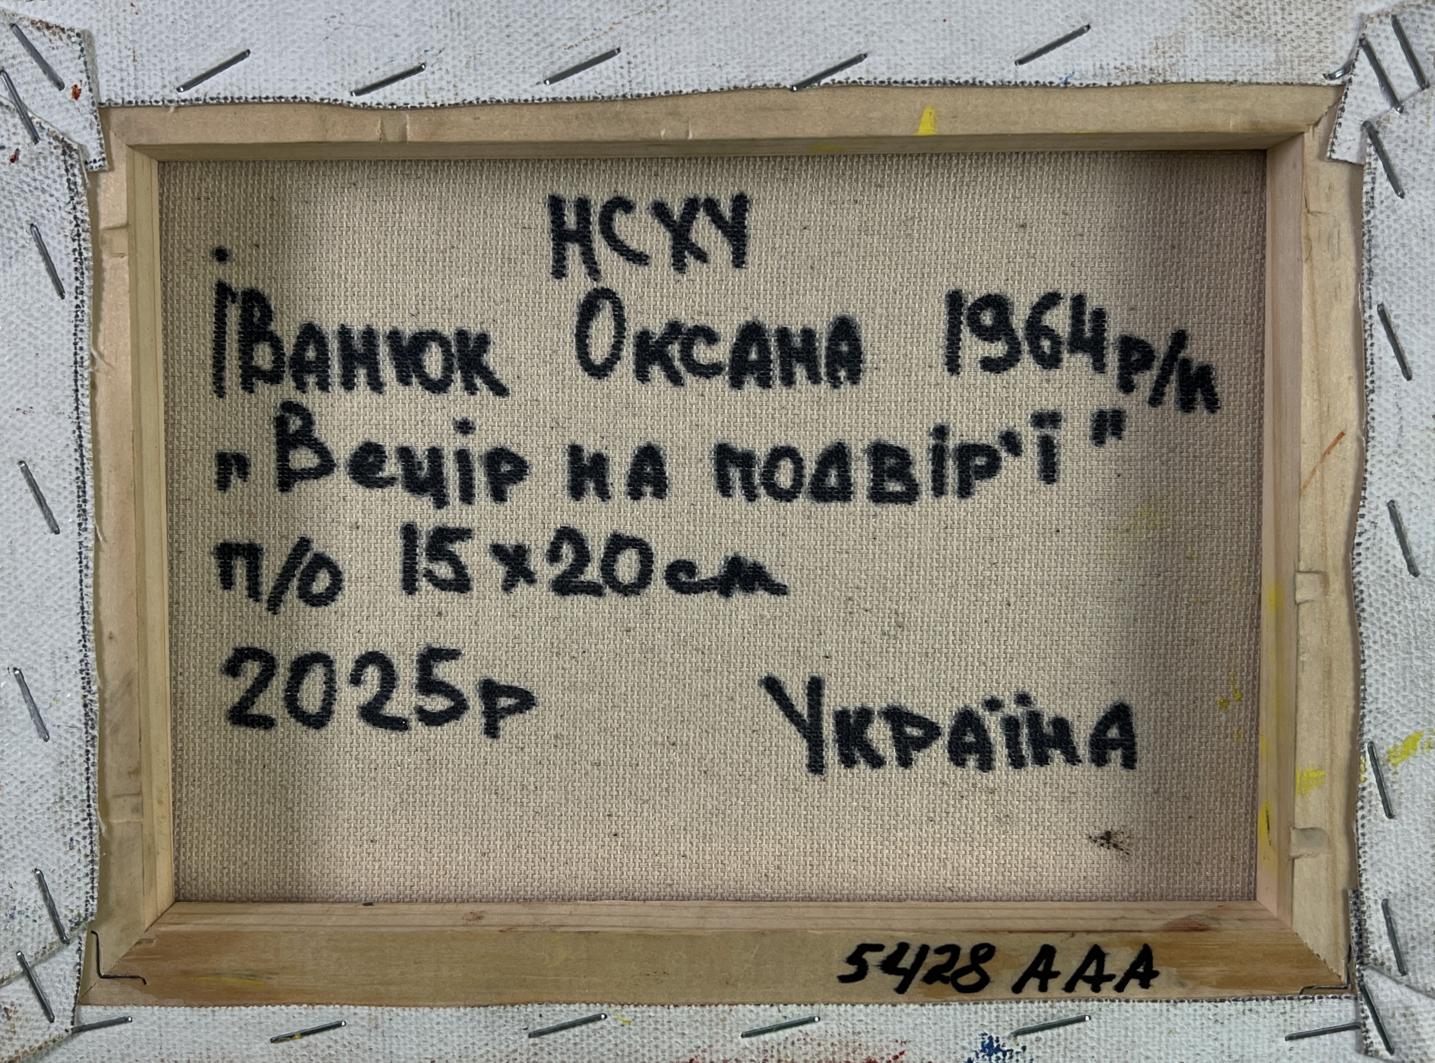 НСХУ
Іванюк Оксана 1964р/н
„Вечір на подвір'ї"
п/о 15х20см
2025р Україна
5428 ААА